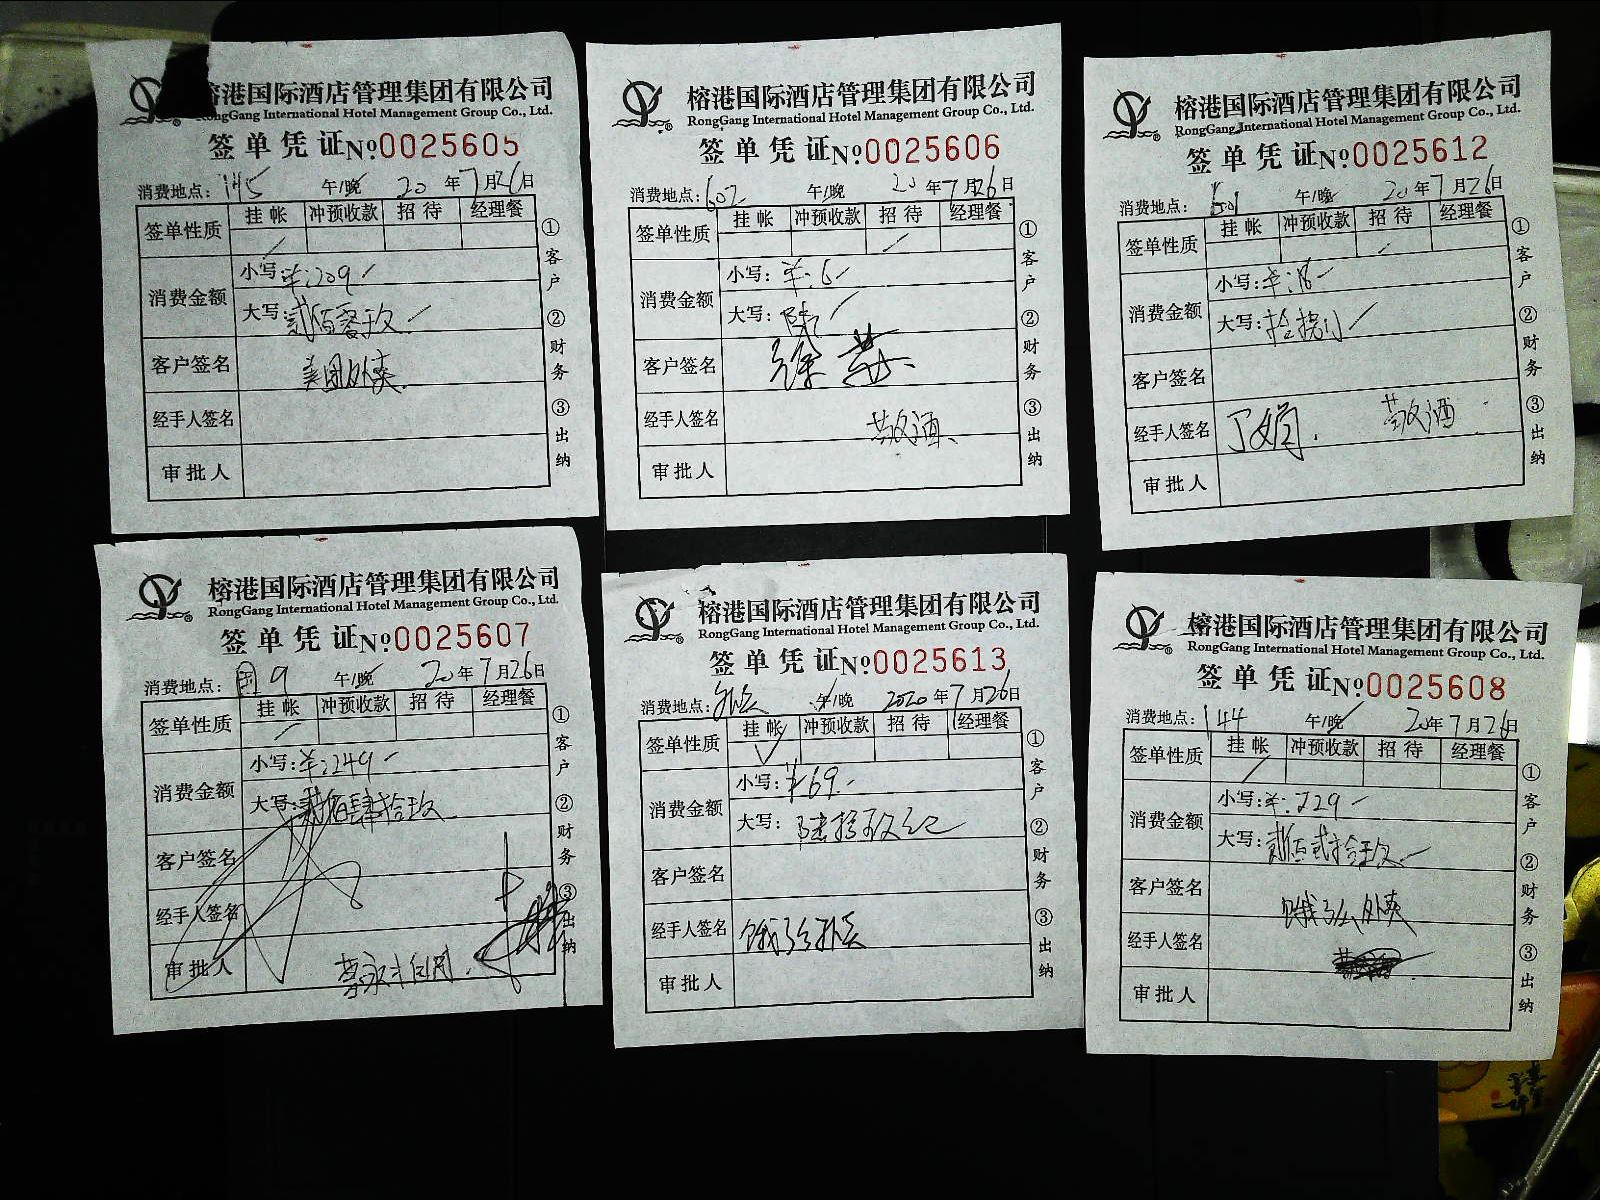 榕港国际酒店管理集团有限公司
RongGang International Hotel Management Group Co., Ltd.
签单凭证 №0025605
消费地点：145 午/晚 20年7月26日
签单性质 挂帐 冲预收款 招待 经理餐
消费金额 小写：¥：209
大写：贰佰零玖
客户签名 美团外卖
经手人签名
审批人
①客户 ②财务 ③出纳
榕港国际酒店管理集团有限公司
RongGang International Hotel Management Group Co., Ltd.
签单凭证 №0025606
消费地点：602 午/晚 20年7月26日
签单性质 挂帐 冲预收款 招待 经理餐
消费金额 小写：¥：6
大写：陆
客户签名 徐
经手人签名 敬酒
审批人
①客户 ②财务 ③出纳
榕港国际酒店管理集团有限公司
RongGang International Hotel Management Group Co., Ltd.
签单凭证 №0025612
消费地点： 午/晚 20年7月26日
签单性质 挂帐 冲预收款 招待 经理餐
消费金额 小写：¥：18
大写：拾捌
客户签名
经手人签名 丁娟 敬酒
审批人
①客户 ②财务 ③出纳
榕港国际酒店管理集团有限公司
RongGang International Hotel Management Group Co., Ltd.
签单凭证 №0025607
消费地点：国9 午/晚 20年7月26日
签单性质 挂帐 冲预收款 招待 经理餐
消费金额 小写：¥：249
大写：贰佰肆拾玖
客户签名
经手人签名
审批人
①客户 ②财务 ③出纳
榕港国际酒店管理集团有限公司
RongGang International Hotel Management Group Co., Ltd.
签单凭证 №0025613
消费地点：外卖 午/晚 2020年7月26日
签单性质 挂帐 冲预收款 招待 经理餐
消费金额 小写：¥69
大写：陆拾玖元
客户签名
经手人签名 饿了么外卖
审批人
①客户 ②财务 ③出纳
榕港国际酒店管理集团有限公司
RongGang International Hotel Management Group Co., Ltd.
签单凭证 №0025608
消费地点：144 午/晚 20年7月26日
签单性质 挂帐 冲预收款 招待 经理餐
消费金额 小写：¥：229
大写：贰佰贰拾玖
客户签名 饿了么外卖
经手人签名
审批人
①客户 ②财务 ③出纳